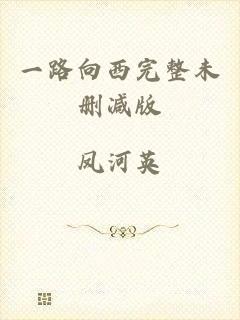 一路向西完整未
删减版
凤河英